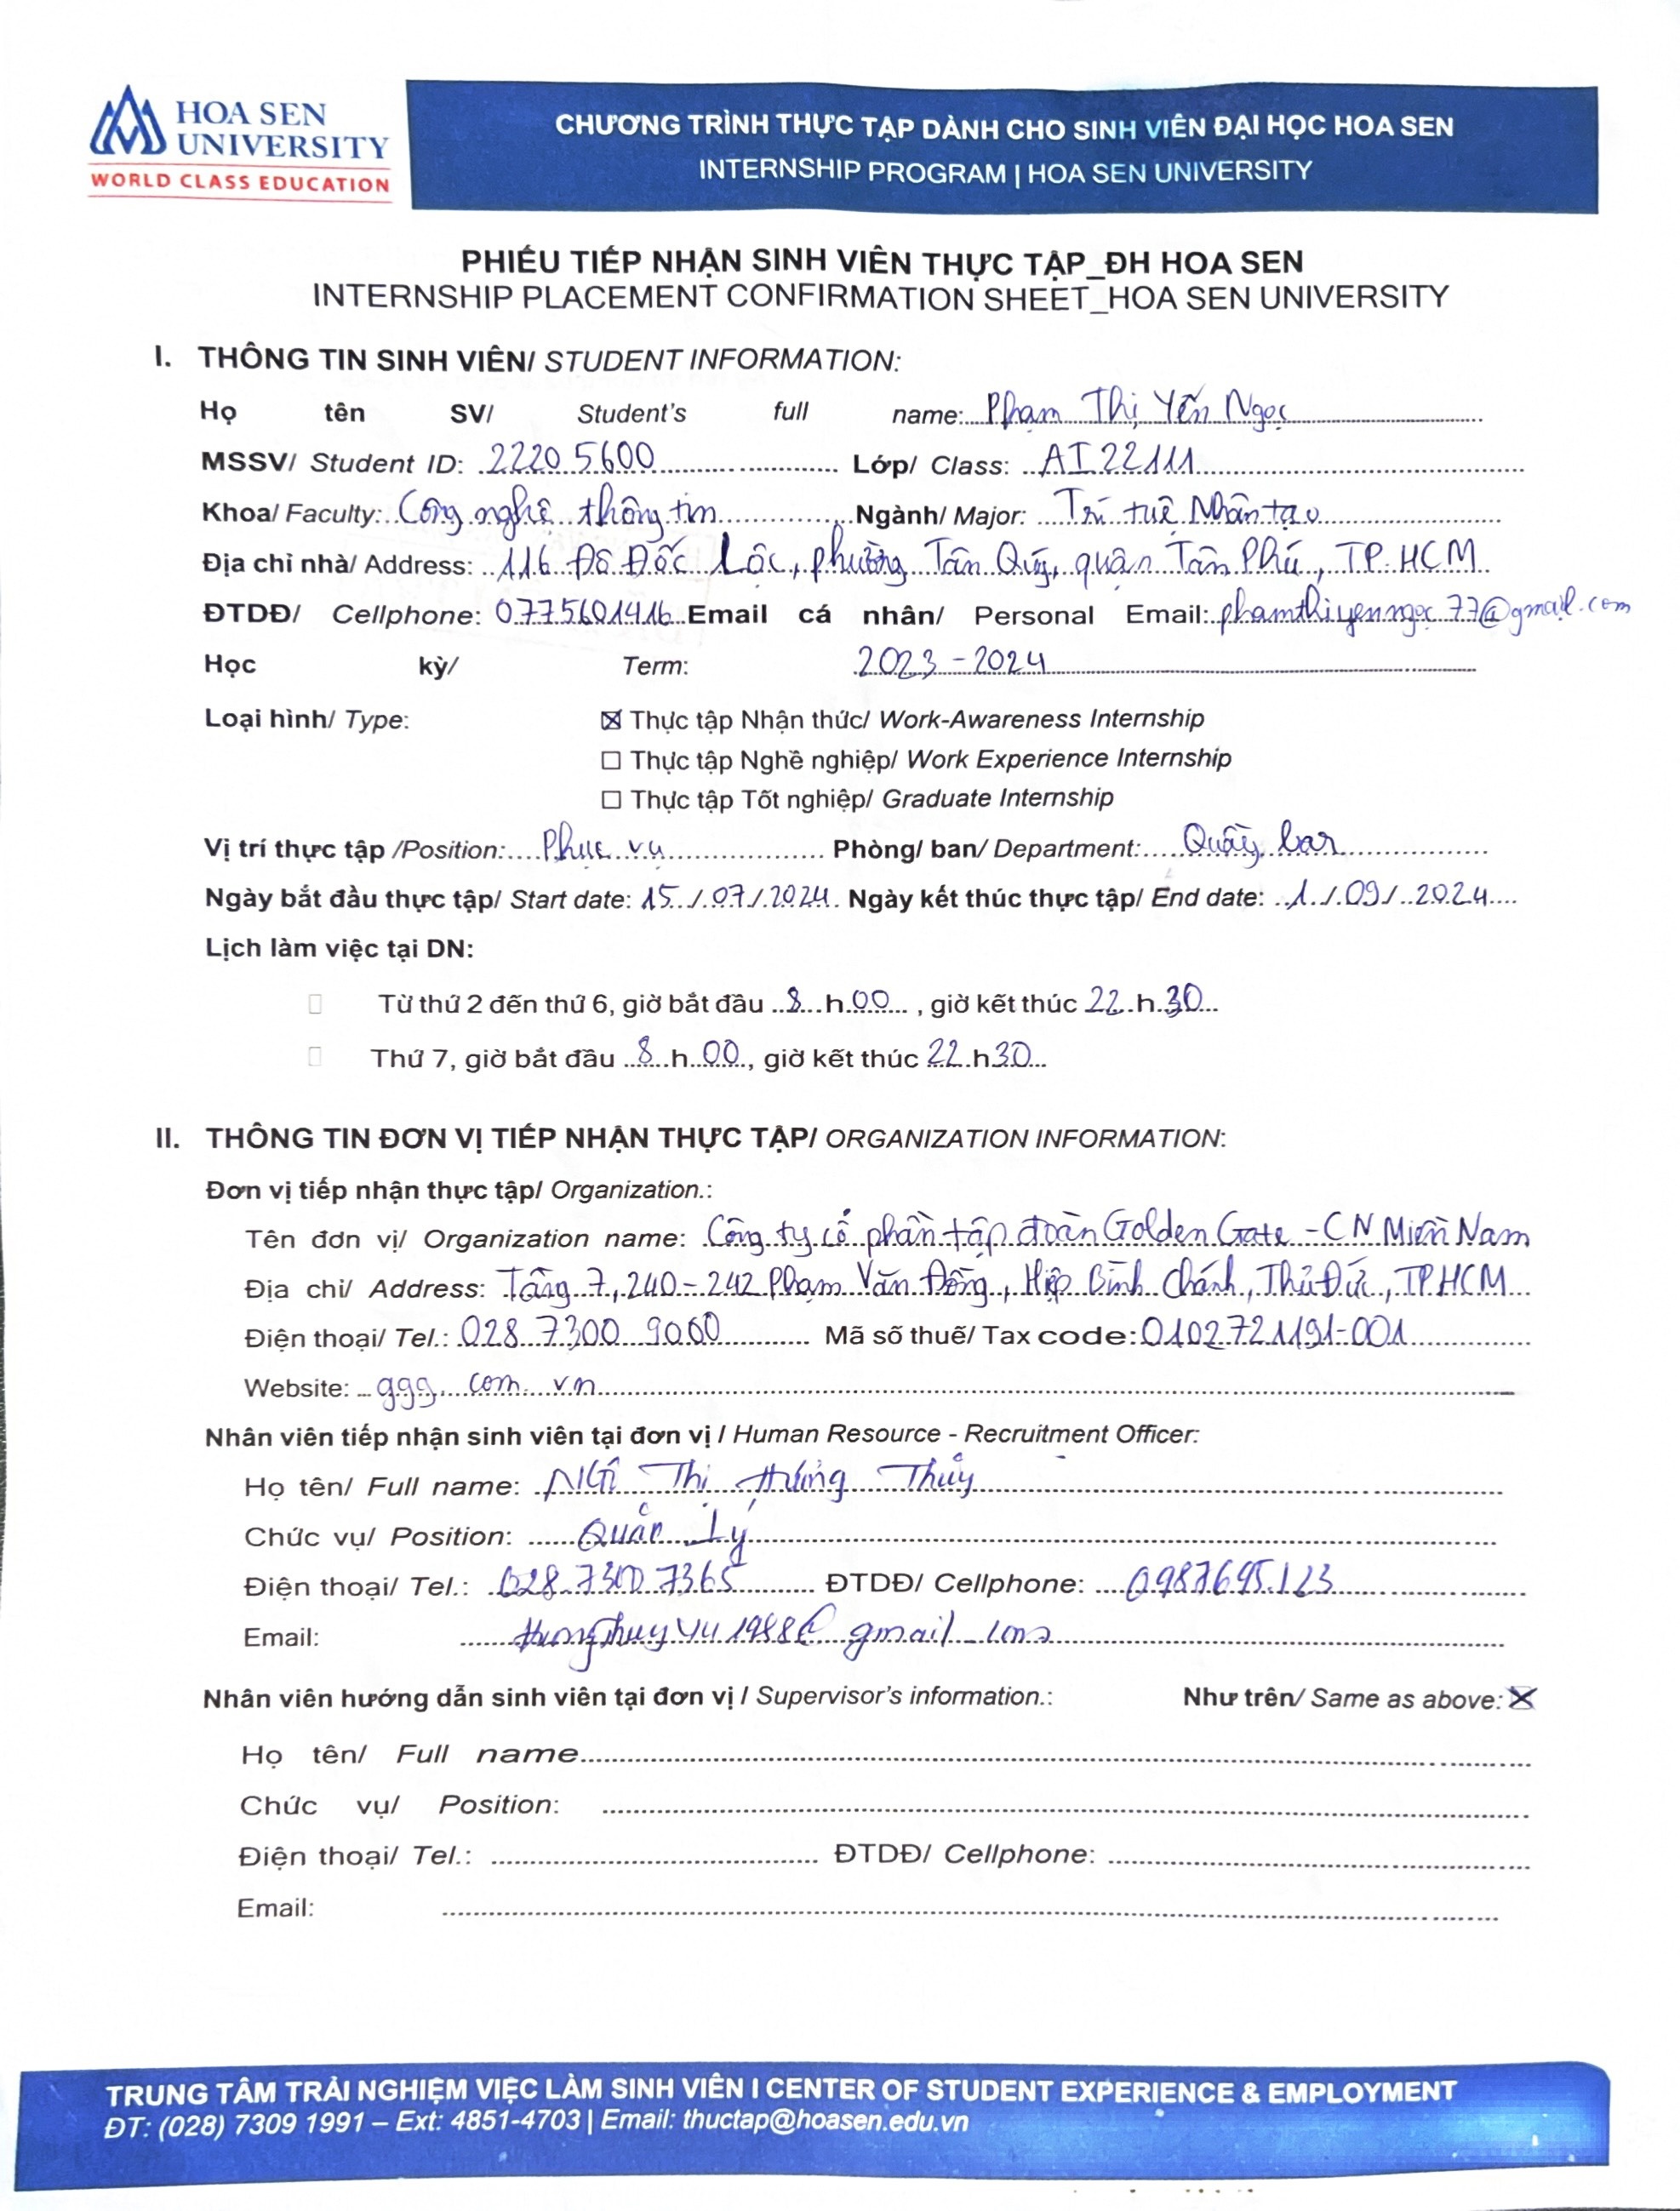 HOA SEN
UNIVERSITY
WORLD CLASS EDUCATION
CHƯƠNG TRÌNH THỰC TẬP DÀNH CHO SINH VIÊN ĐẠI HỌC HOA SEN
INTERNSHIP PROGRAM | HOA SEN UNIVERSITY
PHIẾU TIẾP NHẬN SINH VIÊN THỰC TẬP_ĐH HOA SEN
INTERNSHIP PLACEMENT CONFIRMATION SHEET_HOA SEN UNIVERSITY
I. THÔNG TIN SINH VIÊN/ STUDENT INFORMATION:
Họ tên SV/ Student's full name: Phạm Thị Yến Ngọc
MSSV/ Student ID: 2220 5600 Lớp/ Class: AI22111
Khoa/ Faculty: Công nghệ thông tin Ngành/ Major: Trí tuệ Nhân tạo
Địa chỉ nhà/ Address: 116 Đô Đốc Lộc, phường Tân Quý, quận Tân Phú, TP.HCM
ĐTDĐ/ Cellphone: 0775601416 Email cá nhân/ Personal Email: phamthiyenngoc77@gmail.com
Học kỳ/ Term: 2023 - 2024
Loại hình/ Type: ☒ Thực tập Nhận thức/ Work-Awareness Internship
☐ Thực tập Nghề nghiệp/ Work Experience Internship
☐ Thực tập Tốt nghiệp/ Graduate Internship
Vị trí thực tập /Position: Phục vụ Phòng/ ban/ Department: Quầy bar
Ngày bắt đầu thực tập/ Start date: 15/07/2024. Ngày kết thúc thực tập/ End date: 1/09/2024
Lịch làm việc tại DN:
Từ thứ 2 đến thứ 6, giờ bắt đầu 8 h 00, giờ kết thúc 22 h 30
Thứ 7, giờ bắt đầu 8 h 00, giờ kết thúc 22 h 30
II. THÔNG TIN ĐƠN VỊ TIẾP NHẬN THỰC TẬP/ ORGANIZATION INFORMATION:
Đơn vị tiếp nhận thực tập/ Organization.:
Tên đơn vị/ Organization name: Công ty cổ phần tập đoàn Golden Gate - CN Miền Nam
Địa chỉ/ Address: Tầng 7, 240-242 Phạm Văn Đồng, Hiệp Bình Chánh, Thủ Đức, TPHCM
Điện thoại/ Tel.: 028 7300 9000 Mã số thuế/ Tax code: 0102721191-001
Website: ggg.com.vn
Nhân viên tiếp nhận sinh viên tại đơn vị / Human Resource - Recruitment Officer:
Họ tên/ Full name: Thị Thủy
Chức vụ/ Position: Quản Lý
Điện thoại/ Tel.: 028.7300 7365 ĐTDĐ/ Cellphone: 0987695.123
Email:
Nhân viên hướng dẫn sinh viên tại đơn vị / Supervisor's information.: Như trên/ Same as above: ☒
Họ tên/ Full name
Chức vụ/ Position:
Điện thoại/ Tel.: ĐTDĐ/ Cellphone:
Email:
TRUNG TÂM TRẢI NGHIỆM VIỆC LÀM SINH VIÊN I CENTER OF STUDENT EXPERIENCE & EMPLOYMENT
ĐT: (028) 7309 1991 – Ext: 4851-4703 | Email: thuctap@hoasen.edu.vn